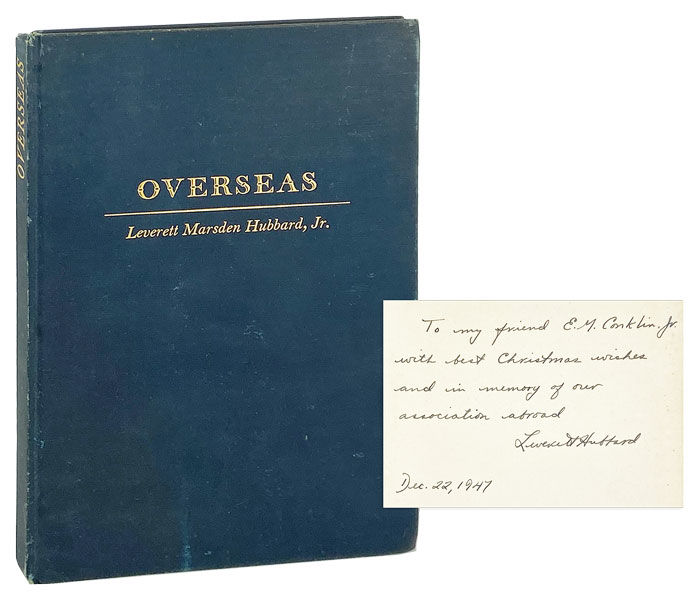 OVERSEAS
OVERSEAS
Leverett Marsden Hubbard, Jr.
To my friend E. Y. Conklin, Jr.
with best Christmas wishes
and in memory of our
association abroad
Leverett Hubbard
Dec. 22, 1947